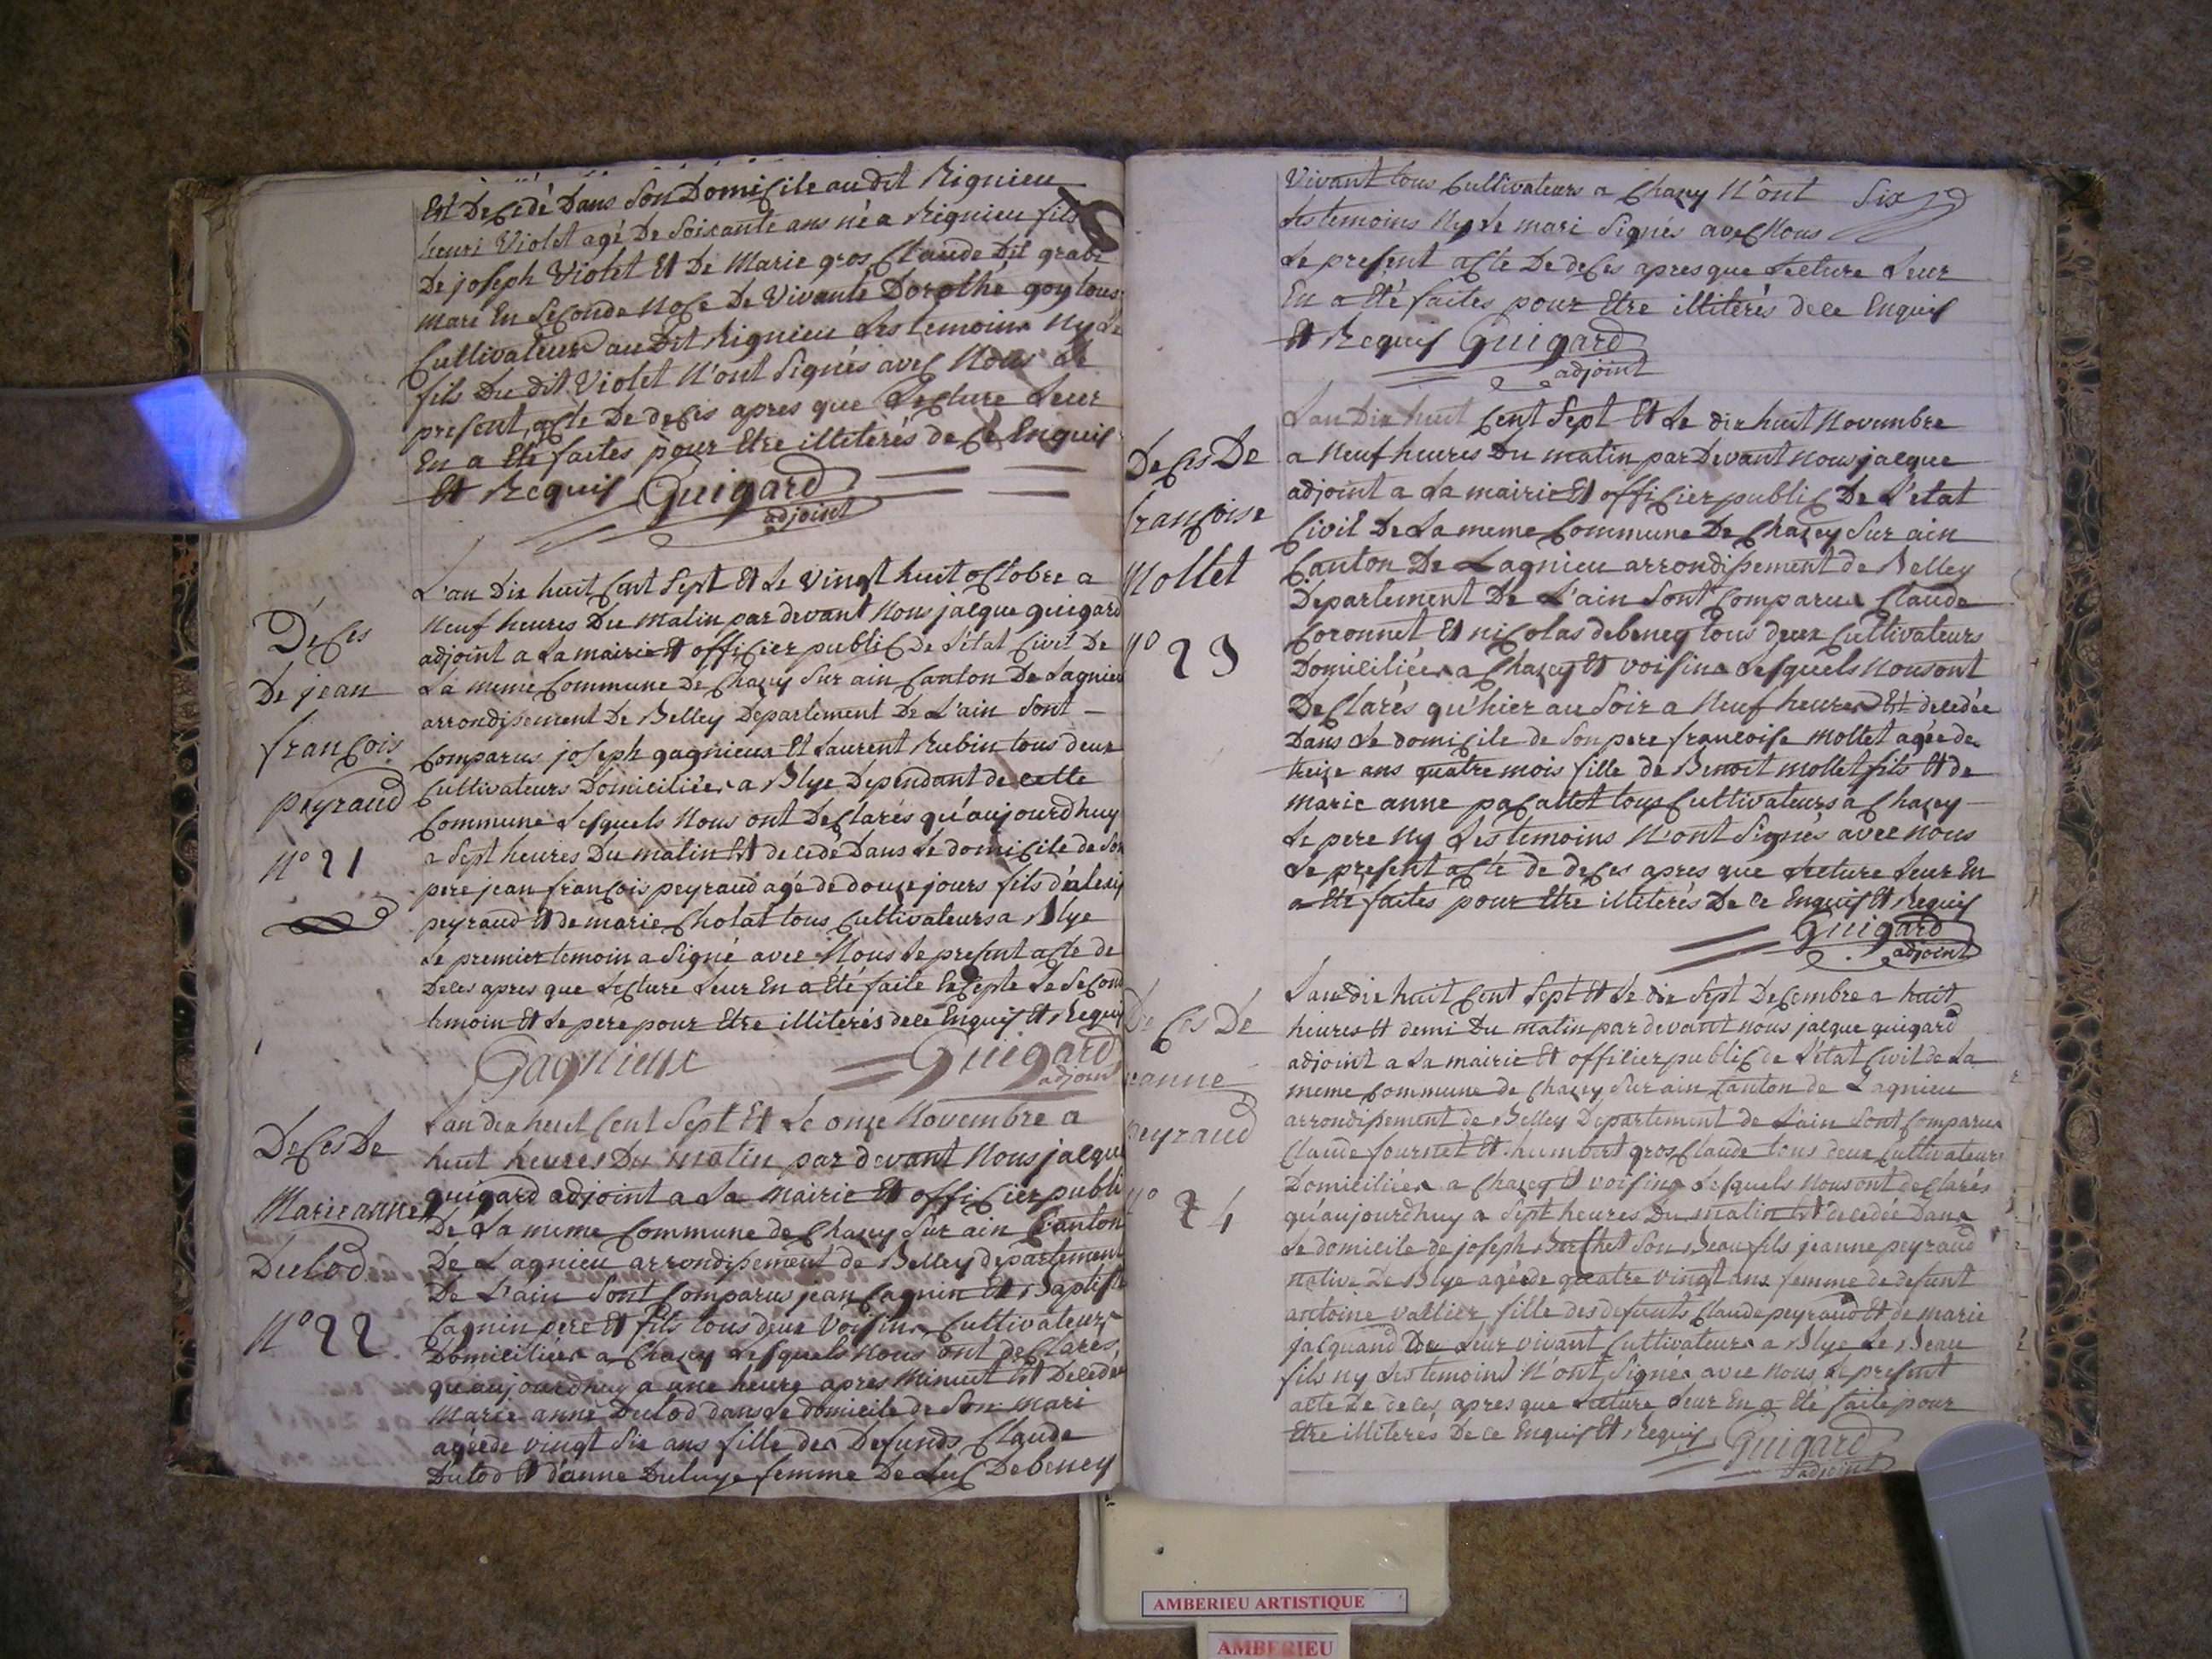 Est Decedé Dans Son Domicile au dit Rignieu
henri Violet agé De Soixante ans né a Rignieu fils
De joseph Violet Et De Marie gros Claude Dit grabe
mari En Seconde Noce De Vivante Dorothé goy tous
Cultivateurs au Dit Rignieu Les temoins Ny Le
fils Du dit Violet N'ont Signés avec Nous Le
present acte De deces apres que Lecture Leur
En a Eté faites pour Etre illiterés de Ce Enquis
Et Requis Guigard
adjoint
Deces
De jean
françois
peyraud
N° 21
L'an Dix huit Cent Sept Et Le Vingt huit octobre a
Neuf heures Du Matin par devant Nous jacque guigard
adjoint a La mairie Et officier public de L'état Civil De
La meme Commune De Chazey Sur ain Canton De Lagnieu
arrondissement De Belley Departement De L'ain Sont
Comparus joseph gagnieux Et Laurent Rubin tous deux
Cultivateurs Domiciliées a Blye Dependant de cette
Commune Lesquels Nous ont Declarés qu'aujourdhuy
a Sept heures Du matin Est decedé Dans Le domicile de Son
pere jean françois peyraud agé de douze jours fils d'alexis
peyraud Et de marie Cholat tous Cultivateurs a Blye
Le premier temoin a Signé avec Nous Le present acte de
Deces apres que Lecture Leur En a Eté faite Excepte Le Second
temoin Et Le pere pour Etre illiterés de ce Enquis Et Requis
Gagnieux Guigard
adjoint
Deces De
Marie anne
Dulod
N° 22
L'an dix huit Cent Sept Et Le onze Novembre a
huit heures Du matin par devant Nous jacque
guigard adjoint a La Mairie Et officier publi
De La meme Commune de Chazey Sur ain Canton
De Lagnieu arrondissement de Belley departement
De L'ain Sont Comparus jean Cagnin Et Baptiste
Cagnin pere Et fils tous deux Voisins Cultivateurs
Domiciliées a Chazey Lesquels Nous ont declarés
qu'aujourdhuy a une heure apres Minuit Est Decedée
Marie anne Dulod dans Le domicile de Son Mari
agée de vingt Six ans fille des Defunds Claude
Dulod Et d'anne Duluye femme De Luc Debeney
Vivant tous Cultivateurs a Chazey N'ont Six
Les temoins Ny Le mari Signés avec Nous
Le present acte De deces apres que Lecture Leur
En a Eté faites pour Etre illiterés de ce Enquis
Et Requis Guigard
adjoint
Deces De
françoise
Mollet
N° 23
L'an Dix huit Cent Sept Et Le dix huit Novembre
a Neuf heures Du matin par Devant Nous jacque
adjoint a La mairie Et officier public De L'etat
Civil De La meme Commune De Chazey Sur ain
Canton De Lagnieu arrondissement de Belley
Departement De L'ain Sont Comparus Claude
Coronnet Et nicolas debeney tous deux Cultivateurs
Domiciliées a Chazey Et voisins Lesquels Nous ont
Declarés qu'hier au Soir a Neuf heures Est decedée
Dans Le domicile de Son pere francoise Mollet agée de
treize ans quatre mois fille de Benoit mollet fils Et de
marie anne pacallet tous Cultivateurs a Chazey
Le pere Ny Les temoins N'ont Signés avec nous
Le present acte de deces apres que Lecture Leur En
a Eté faites pour Etre illiterés De ce Enquis Et Requis
Guigard
adjoint
Deces De
jeanne
peyraud
N° 24
L'an dix huit Cent Sept Et Le dix Sept Decembre a huit
heures Et demi Du matin par devant nous jacque guigard
adjoint a La mairie Et officier public de L'état Civil de La
meme Commune de Chazey Sur ain Canton de Lagnieu
arrondissement de Belley Departement de L'ain Sont Comparus
Claude fournet Et humbert gros Claude tous deux Cultivateurs
Domiciliées a Chazey Et voisins Lesquels Nous ont declarés
qu'aujourdhuy a Sept heures Du matin Est decedée Dans
Le domicile de joseph Berthet Son Beau fils jeanne peyraud
native De Blye agée de quatre vingt ans femme de defunt
antoine vallier fille des defunts Claude peyraud Et de marie
jacquand De Leur vivant Cultivateurs a Blye Le Beau
fils ny Les temoins N'ont Signés avec Nous Le present
acte de deces apres que Lecture Leur En a Eté faite pour
Etre illiterés De ce Enquis Et Requis Guigard
adjoint
AMBERIEU ARTISTIQUE
AMBERIEU